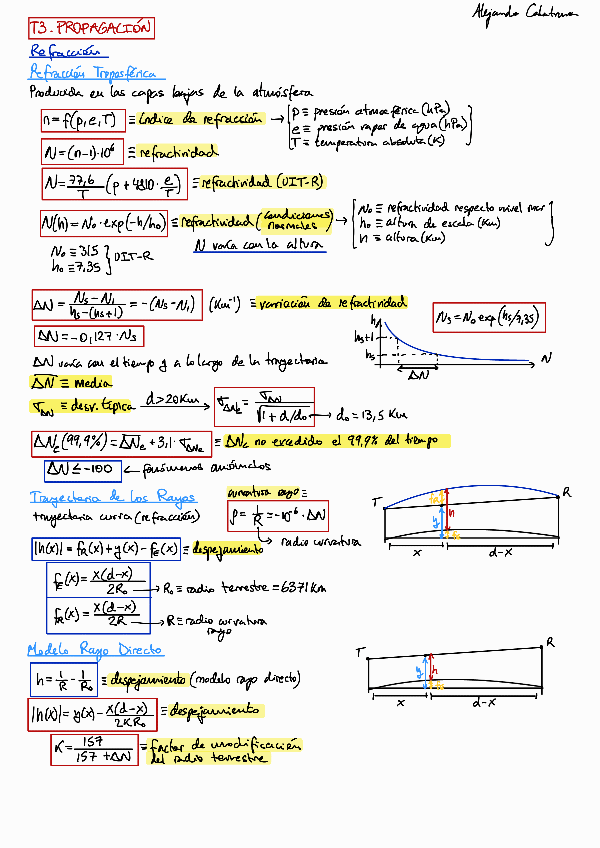 Alejandro
T3. PROPAGACIÓN
Refracción
Refracción Troposférica
Producida en las capas bajas de la atmósfera
n = f(p,e,T) ≡ índice de refracción → p ≡ presión atmosférica (hPa)
e ≡ presión vapor de agua (hPa)
T ≡ temperatura absoluta (K)
N = (n-1)·10⁶ ≡ refractividad
N = 77,6/T (p + 4810·e/T) ≡ refractividad (UIT-R)
N(h) = N₀·exp(-h/h₀) ≡ refractividad (condiciones normales) → N₀ ≡ refractividad respecto nivel mar
h₀ ≡ altura de escala (Km)
h ≡ altura (Km)
N varía con la altura
N₀ ≡ 315
h₀ ≡ 7,35 } UIT-R
ΔN = (Ns - N₁)/(hs-(hs+1)) = -(Ns-N₁) (Km⁻¹) ≡ variación de refractividad
Ns = N₀ exp(hs/7,35)
ΔN = -0,127·Ns
h
hs+1
hs
N
ΔN
ΔN varía con el tiempo y a lo largo de la trayectoria
ΔN ≡ media
σΔN ≡ desv. típica d>20Km → σΔNe = σΔN/√(1+d/d₀) → d₀ = 13,5 Km
ΔNe(99,9%) = ΔNe + 3,1·σΔNe ≡ ΔNe no excedido el 99,9% del tiempo
ΔN ≤ -100 ← fenómenos anómalos
Trayectoria de los Rayos
curvatura rayo ≡
trayectoria curva (refracción)
ρ = 1/R = -10⁻⁶·ΔN
→ radio curvatura
T
R
fR
h
y
fE
x
d-x
|h(x)| = fR(x) + y(x) - fE(x) ≡ despejamiento
fE(x) = x(d-x)/2R₀ → R₀ ≡ radio terrestre = 6371 Km
fR(x) = x(d-x)/2R → R ≡ radio curvatura rayo
Modelo Rayo Directo
T
R
y
h
fE
x
d-x
h = 1/R - 1/R₀ ≡ despejamiento (modelo rayo directo)
|h(x)| = y(x) - x(d-x)/2KR₀ ≡ despejamiento
K = 157/(157+ΔN) ≡ factor de modificación
del radio terrestre